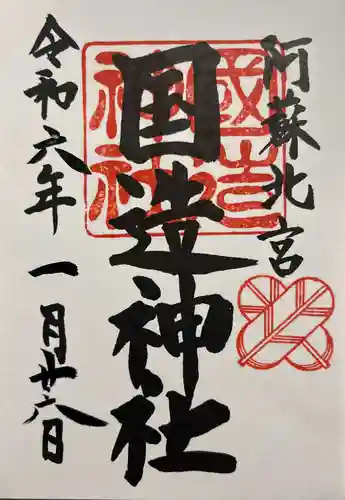 阿蘇北宮
国造神社
國造神社
令和六年一月廿六日